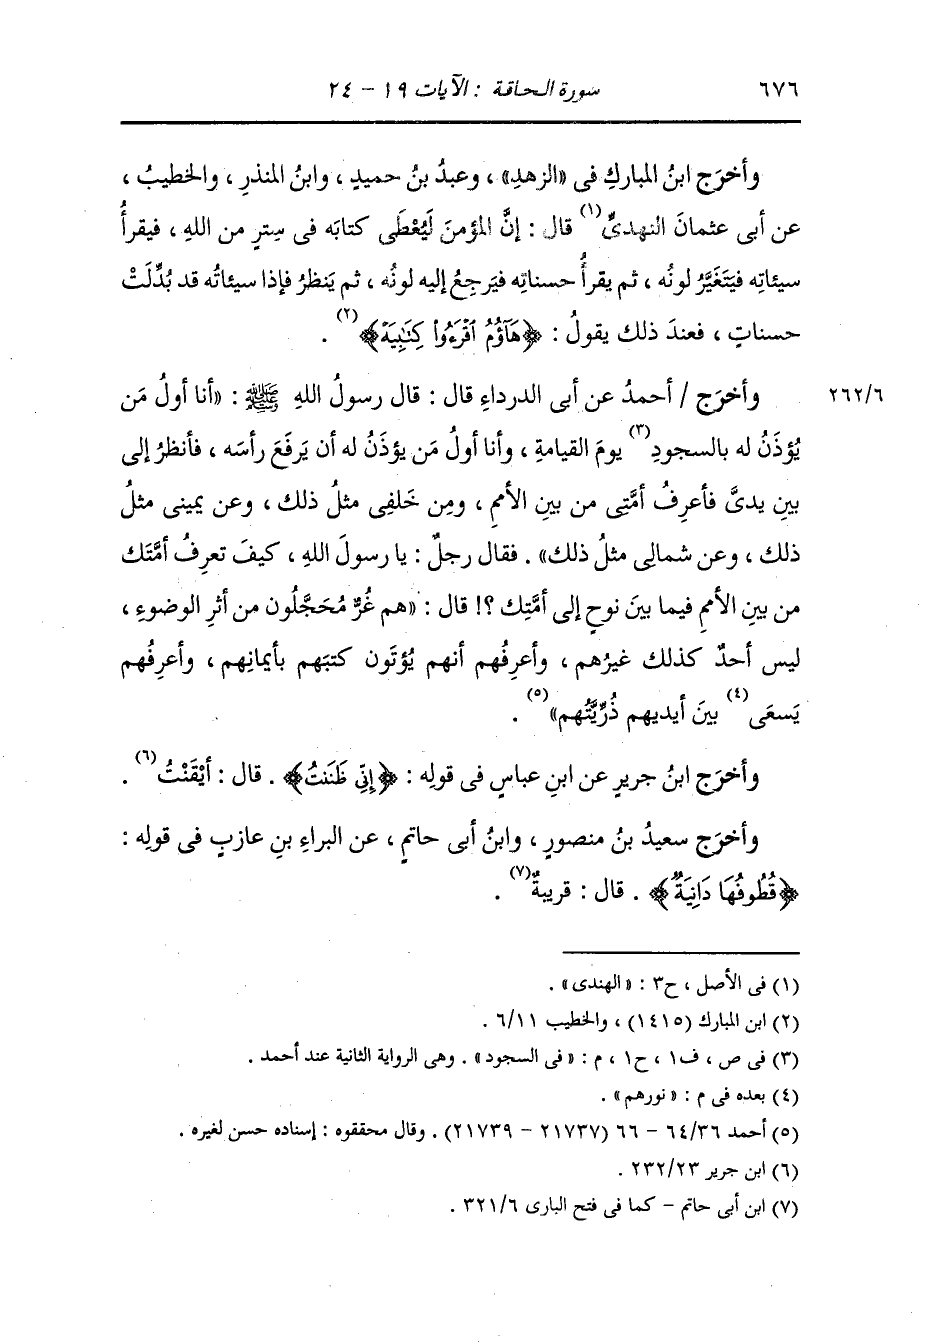 ٦٧٦ سورة الحاقة : الآيات ١٩ - ٢٤
وأخرَج ابنُ المباركِ فى «الزهدِ» ، وعبدُ بنُ حميدٍ ، وابنُ المنذرِ ، والخطيبُ ،
عن أبى عثمانَ النهدىِّ(١) قال : إنَّ المؤمنَ لَيُعْطَى كتابَه فى سِترٍ من اللهِ ، فيقرأُ
سيئاتِه فيَتَغَيَّرُ لونُه ، ثم يقرأُ حسناتِه فيَرجِعُ إليه لونُه ، ثم يَنظرُ فإذا سيئاتُه قد بُدِّلَتْ
حسناتٍ ، فعندَ ذلك يقولُ : ﴿هَآؤُمُ ٱقْرَءُوا۟ كِتَٰبِيَهْ﴾(٢) .
٢٦٢/٦ وأخرَج / أحمدُ عن أبى الدرداءِ قال : قال رسولُ اللهِ ﷺ : «أنا أولُ مَن
يُؤذَنُ له بالسجودِ(٣) يومَ القيامةِ ، وأنا أولُ مَن يؤذَنُ له أن يَرفَعَ رأسَه ، فأنظرُ إلى
بينِ يدىَّ فأعرِفُ أمَّتِى من بينِ الأممِ ، ومِن خَلفِى مثلُ ذلك ، وعن يمينى مثلُ
ذلك ، وعن شمالِى مثلُ ذلك» . فقال رجلٌ : يا رسولَ اللهِ ، كيفَ تعرِفُ أمَّتَك
من بينِ الأممِ فيما بينَ نوحٍ إلى أمَّتِك ؟! قال : «هم غُرٌّ مُحَجَّلُون من أثرِ الوضوءِ ،
ليس أحدٌ كذلك غيرُهم ، وأعرِفُهم أنهم يُؤتَون كتبَهم بأيمانِهم ، وأعرِفُهم
يَسعَى(٤) بينَ أيديهم ذُرِّيَّتُهم»(٥) .
وأخرَج ابنُ جريرٍ عن ابنِ عباسٍ فى قولِه : ﴿إِنِّى ظَنَنتُ﴾ . قال : أيْقَنْتُ(٦) .
وأخرَج سعيدُ بنُ منصورٍ ، وابنُ أبى حاتمٍ ، عن البراءِ بنِ عازبٍ فى قولِه :
﴿قُطُوفُهَا دَانِيَةٌ﴾ . قال : قريبةٌ(٧) .
(١) فى الأصل ، ح٣ : «الهندى» .
(٢) ابن المبارك (١٤١٥) ، والخطيب ٦/١١ .
(٣) فى ص ، ف١ ، ح١ ، م : «فى السجود» . وهى الرواية الثانية عند أحمد .
(٤) بعده فى م : «نورهم» .
(٥) أحمد ٦٤/٣٦ - ٦٦ (٢١٧٣٧ - ٢١٧٣٩) . وقال محققوه : إسناده حسن لغيره .
(٦) ابن جرير ٢٣٢/٢٣ .
(٧) ابن أبى حاتم - كما فى فتح البارى ٣٢١/٦ .